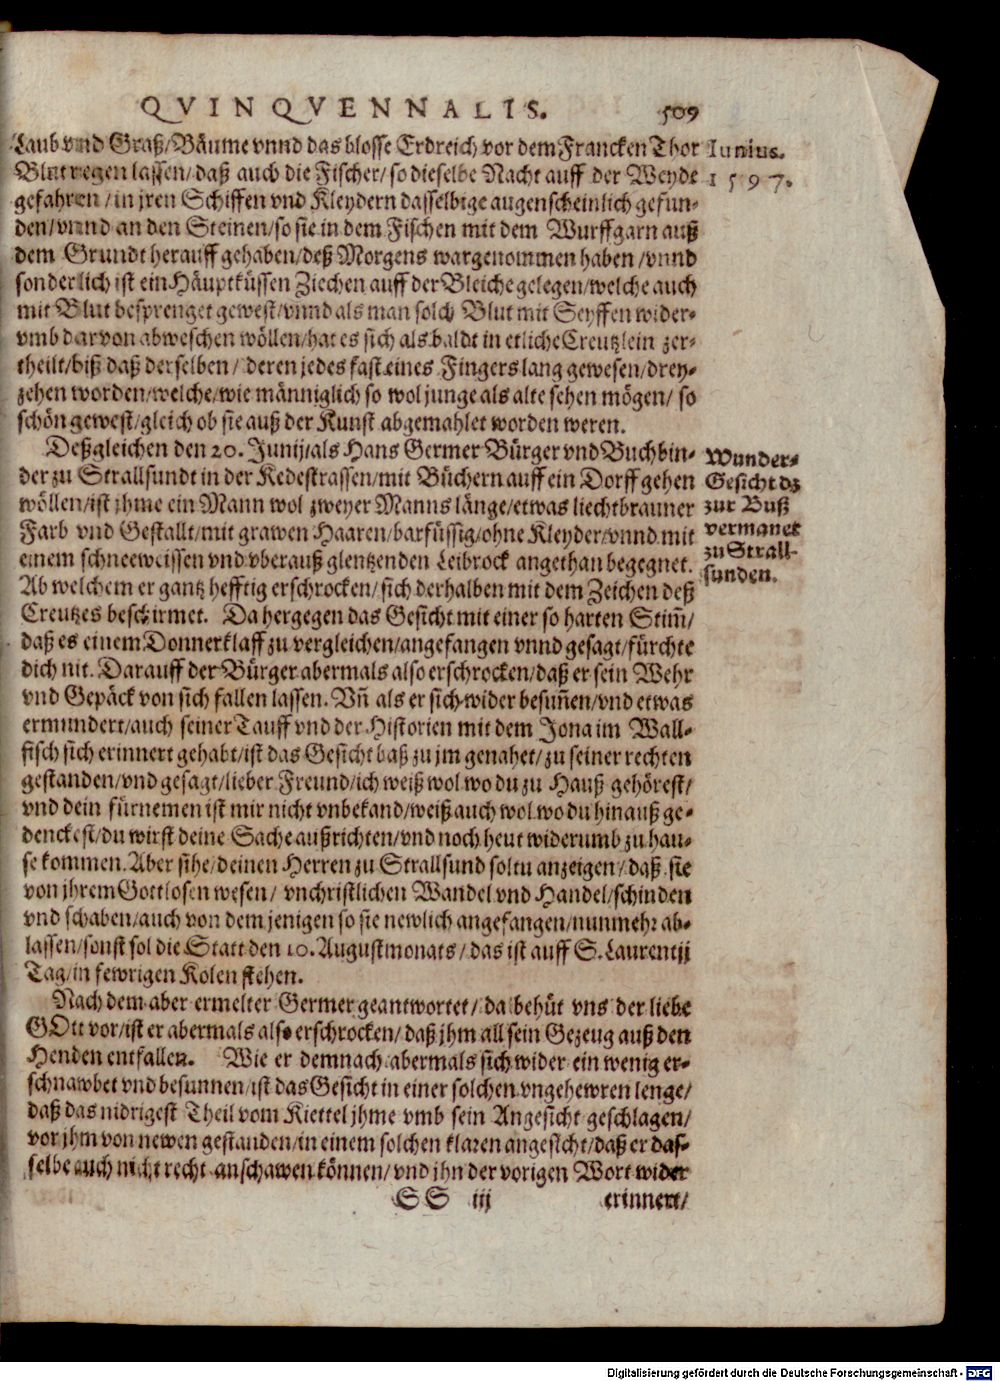 QVINQVENNALIS. 509
Laub vnd Graß/Bäume vnnd das blosse Erdreich vor dem Francken Thor
Iunius.
Blut regen lassen/daß auch die Fischer/so dieselbe Nacht auff der Weyde
1597.
gefahren/in jren Schiffen vnd Kleydern dasselbige augenscheinlich gefun-
den/vnnd an den Steinen/so sie in dem Fischen mit dem Wurffgarn auß
dem Grundt herauff gehaben/deß Morgens wargenommen haben/vnnd
sonderlich ist ein Häuptküssen Ziechen auff der Bleiche gelegen/welche auch
mit Blut besprenget gewest/vnnd als man solch Blut mit Seyffen wider-
vmb darvon abweschen wöllen/hat es sich als baldt in etliche Creutzlein zer-
theilt/biß daß derselben/deren jedes fast eines Fingers lang gewesen/drey-
zehen worden/welche/wie männiglich so wol junge als alte sehen mögen/so
schön gewest/gleich ob sie auß der Kunst abgemahlet worden weren.
Deßgleichen den 20. Junij/als Hans Germer Bürger vnd Buchbin-
der zu Strallsundt in der Kedestrassen/mit Büchern auff ein Dorff gehen
wöllen/ist jhme ein Mann wol zweyer Manns länge/etwas liechtbrauner
Farb vnd Gestallt/mit grawen Haaren/barfüssig/ohne Kleyder/vnnd mit
einem schneeweissen vnd vberauß glentzenden Leibrock angethan begegnet.
Wunder-
Gesicht dz
zur Buß
vermanet
zu Strall-
sunden.
Ab welchem er gantz hefftig erschrocken/sich derhalben mit dem Zeichen deß
Creutzes beschirmet. Da hergegen das Gesicht mit einer so harten Stim̃/
daß es einem Donnerklaff zu vergleichen/angefangen vnnd gesagt/fürchte
dich nit. Darauff der Bürger abermals also erschrocken/daß er sein Wehr
vnd Gepäck von sich fallen lassen. Vñ als er sich wider besuñen/vnd etwas
ermundert/auch seiner Tauff vnd der Historien mit dem Jona im Wall-
fisch sich erinnert gehabt/ist das Gesicht baß zu jm genahet/zu seiner rechten
gestanden/vnd gesagt/lieber Freund/ich weiß wol wo du zu Hauß gehörest/
vnd dein fürnemen ist mir nicht vnbekand/weiß auch wol wo du hinauß ge-
denckest/du wirst deine Sache außrichten/vnd noch heut widerumb zu hau-
se kommen. Aber sihe/deinen Herren zu Strallsund soltu anzeigen/daß sie
von jhrem Gottlosen wesen/vnchristlichen Wandel vnd Handel/schinden
vnd schaben/auch von dem jenigen so sie newlich angefangen/nunmehr ab-
lassen/sonst sol die Statt den 10. Augustmonats/das ist auff S. Laurentij
Tag/in fewrigen Kolen stehen.
Nach dem aber ermelter Germer geantwortet/da behüt vns der liebe
GOtt vor/ist er abermals also erschrocken/daß jhm all sein Gezeug auß den
Henden entfallen. Wie er demnach abermals sich wider ein wenig er-
schnawbet vnd besunnen/ist das Gesicht in einer solchen vngehewren lenge/
daß das nidrigest Theil vom Kiettel jhme vmb sein Angesicht geschlagen/
vor jhm von newen gestanden/in einem solchen klaren angesicht/daß er das-
selbe auch nicht recht anschawen können/vnd jhn der vorigen Wort wider
SS iij erinnert/
Digitalisierung gefördert durch die Deutsche Forschungsgemeinschaft - DFG